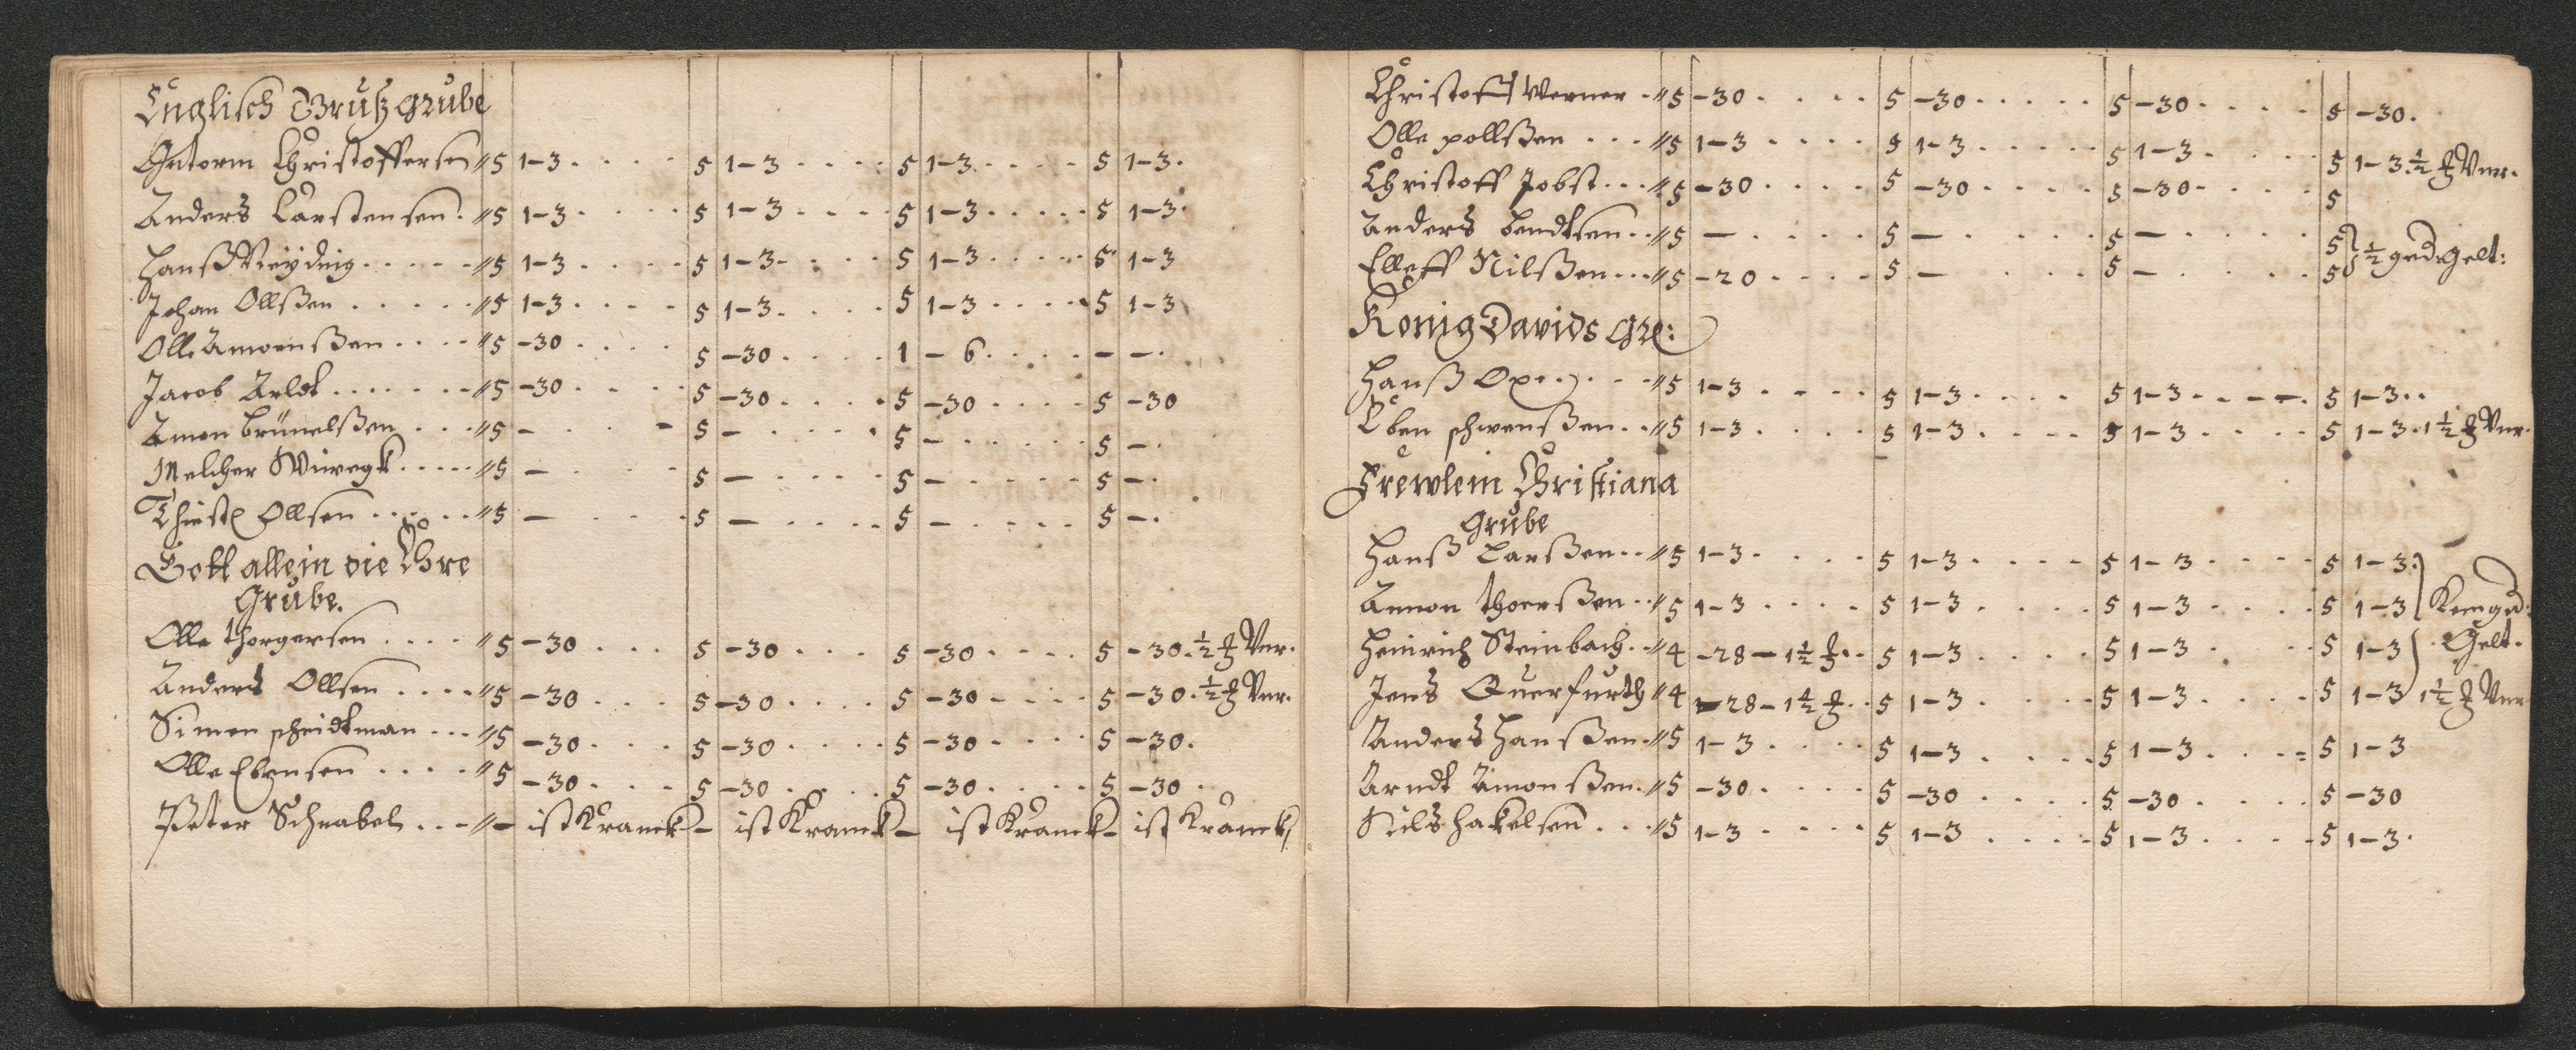 Englisch Gruß grube
Gutorm Christoffersen // 5 1-3 . . . . 5 1-3 . . . . 5 1-3 . . . . 5 1-3.
Anders Carstensen . // 5 1-3 . . . . 5 1-3 . . . . 5 1-3 . . . . 5 1-3.
Hanß . . . . // 5 1-3 . . . . 5 1-3 . . . . 5 1-3 . . . . 5 1-3
Johan Ollßen . . . . // 5 1-3 . . . . 5 1-3 . . . . 5 1-3 . . . . 5 1-3
Olle Amonßen . . . . // 5 -30 . . . . 5 -30 . . . . 1 - 6 . . . . - -.
Jacob Arldt . . . . // 5 -30 . . . . 5 -30 . . . . 5 -30 . . . . 5 -30
Amon . . . // 5 - . . . 5 - . . . . 5 - . . . . 5 -.
Melcher . . . . // 5 - . . . 5 - . . . . 5 - . . . . 5 -.
Ollsen . . . . // 5 - . . . 5 - . . . . 5 - . . . . 5 -.
Gott allein die Ehre
Grube.
Olle Thorgersen . . . . // 5 -30 . . . 5 -30 . . . 5 -30 . . . . 5 -30. ½ Vnr.
Anders Ollsen . . . . // 5 -30 . . . 5 -30 . . . . 5 -30 . . . . 5 -30. ½ Vnr.
Simon scheidtman . . . // 5 -30 . . . 5 -30 . . . . 5 -30 . . . . 5 -30.
Olle Ebensen . . . . // 5 -30 . . . 5 -30 . . . . 5 -30 . . . . 5 -30 .
Peter Schnabel . . . // - ist Kranck - ist Kranck - ist Kranck - ist Kranck
Christoff Werner . // 5 -30 . . . . 5 -30 . . . . 5 -30 . . . . 5 -30.
Olle pollßen . . . // 5 1-3 . . . . 5 1-3 . . . . 5 1-3 . . . . 5 1-3 ½ Vnr.
Christoff Jobst . . . // 5 -30 . . . . 5 -30 . . . . 5 -30 . . . . 5
Anders bendtsen . . // 5 - . . . . 5 - . . . . 5 - . . . . 5
Elleff Nilßen . . . // 5 -20 . . . . 5 - . . . . 5 - . . . . 5 } ½ ged: gelt:
Konig Davids Gr:
Hanß . . . // 5 1-3 . . . . 5 1-3 . . . . 5 1-3 . . . . 5 1-3 . .
Eben schwenßen . . // 5 1-3 . . . . 5 1-3 . . . . 5 1-3 . . . . 5 1-3 . 1½ Vnr.
Frewlein Christiana
Grube
Hanß Larßen . . // 5 1-3 . . . . 5 1-3 . . . . 5 1-3 . . . . 5 1-3 .
Amon thoerßen . . // 5 1-3 . . . . 5 1-3 . . . . 5 1-3 . . . . 5 1-3 Kein ged:
Heinrich Steinbach . . // 4 -28 - 1½ . . 5 1-3 . . . . 5 1-3 . . . 5 1-3 Gelt.
Jens Querfurth // 4 -28 - 1½ . . 5 1-3 . . . . 5 1-3 . . . . 5 1-3 1½ Vnr
Anders Hanßen . // 5 1-3 . . . . 5 1-3 . . . . 5 1-3 . . . 5 1-3
Arndt Amonßen . // 5 -30 . . . . 5 -30 . . . . 5 -30 . . . . 5 -30
Nils Hakelsen . . . // 5 1-3 . . . . 5 1-3 . . . . 5 1-3 . . . . 5 1-3.